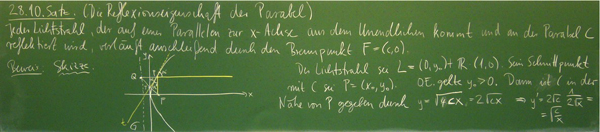 28.10. Satz. (Die Reflexionseigenschaft der Parabel)
Jeder Lichtstrahl, der auf einer Parallelen zur x-Achse aus dem Unendlichen kommt und an der Parabel C
reflektiert wird, verläuft anschließend durch den Brennpunkt F = (c,0).
Beweis. Skizze
Der Lichtstrahl sei L = (0,y₀) + ℝ (1,0). Sein Schnittpunkt
mit C sei P = (x₀,y₀). OE. gelte y₀ > 0. Dann ist C in der
Nähe von P gegeben durch y = √4cx = 2√cx ⇒ y' = 2√c 1/2√x =
= √c/x